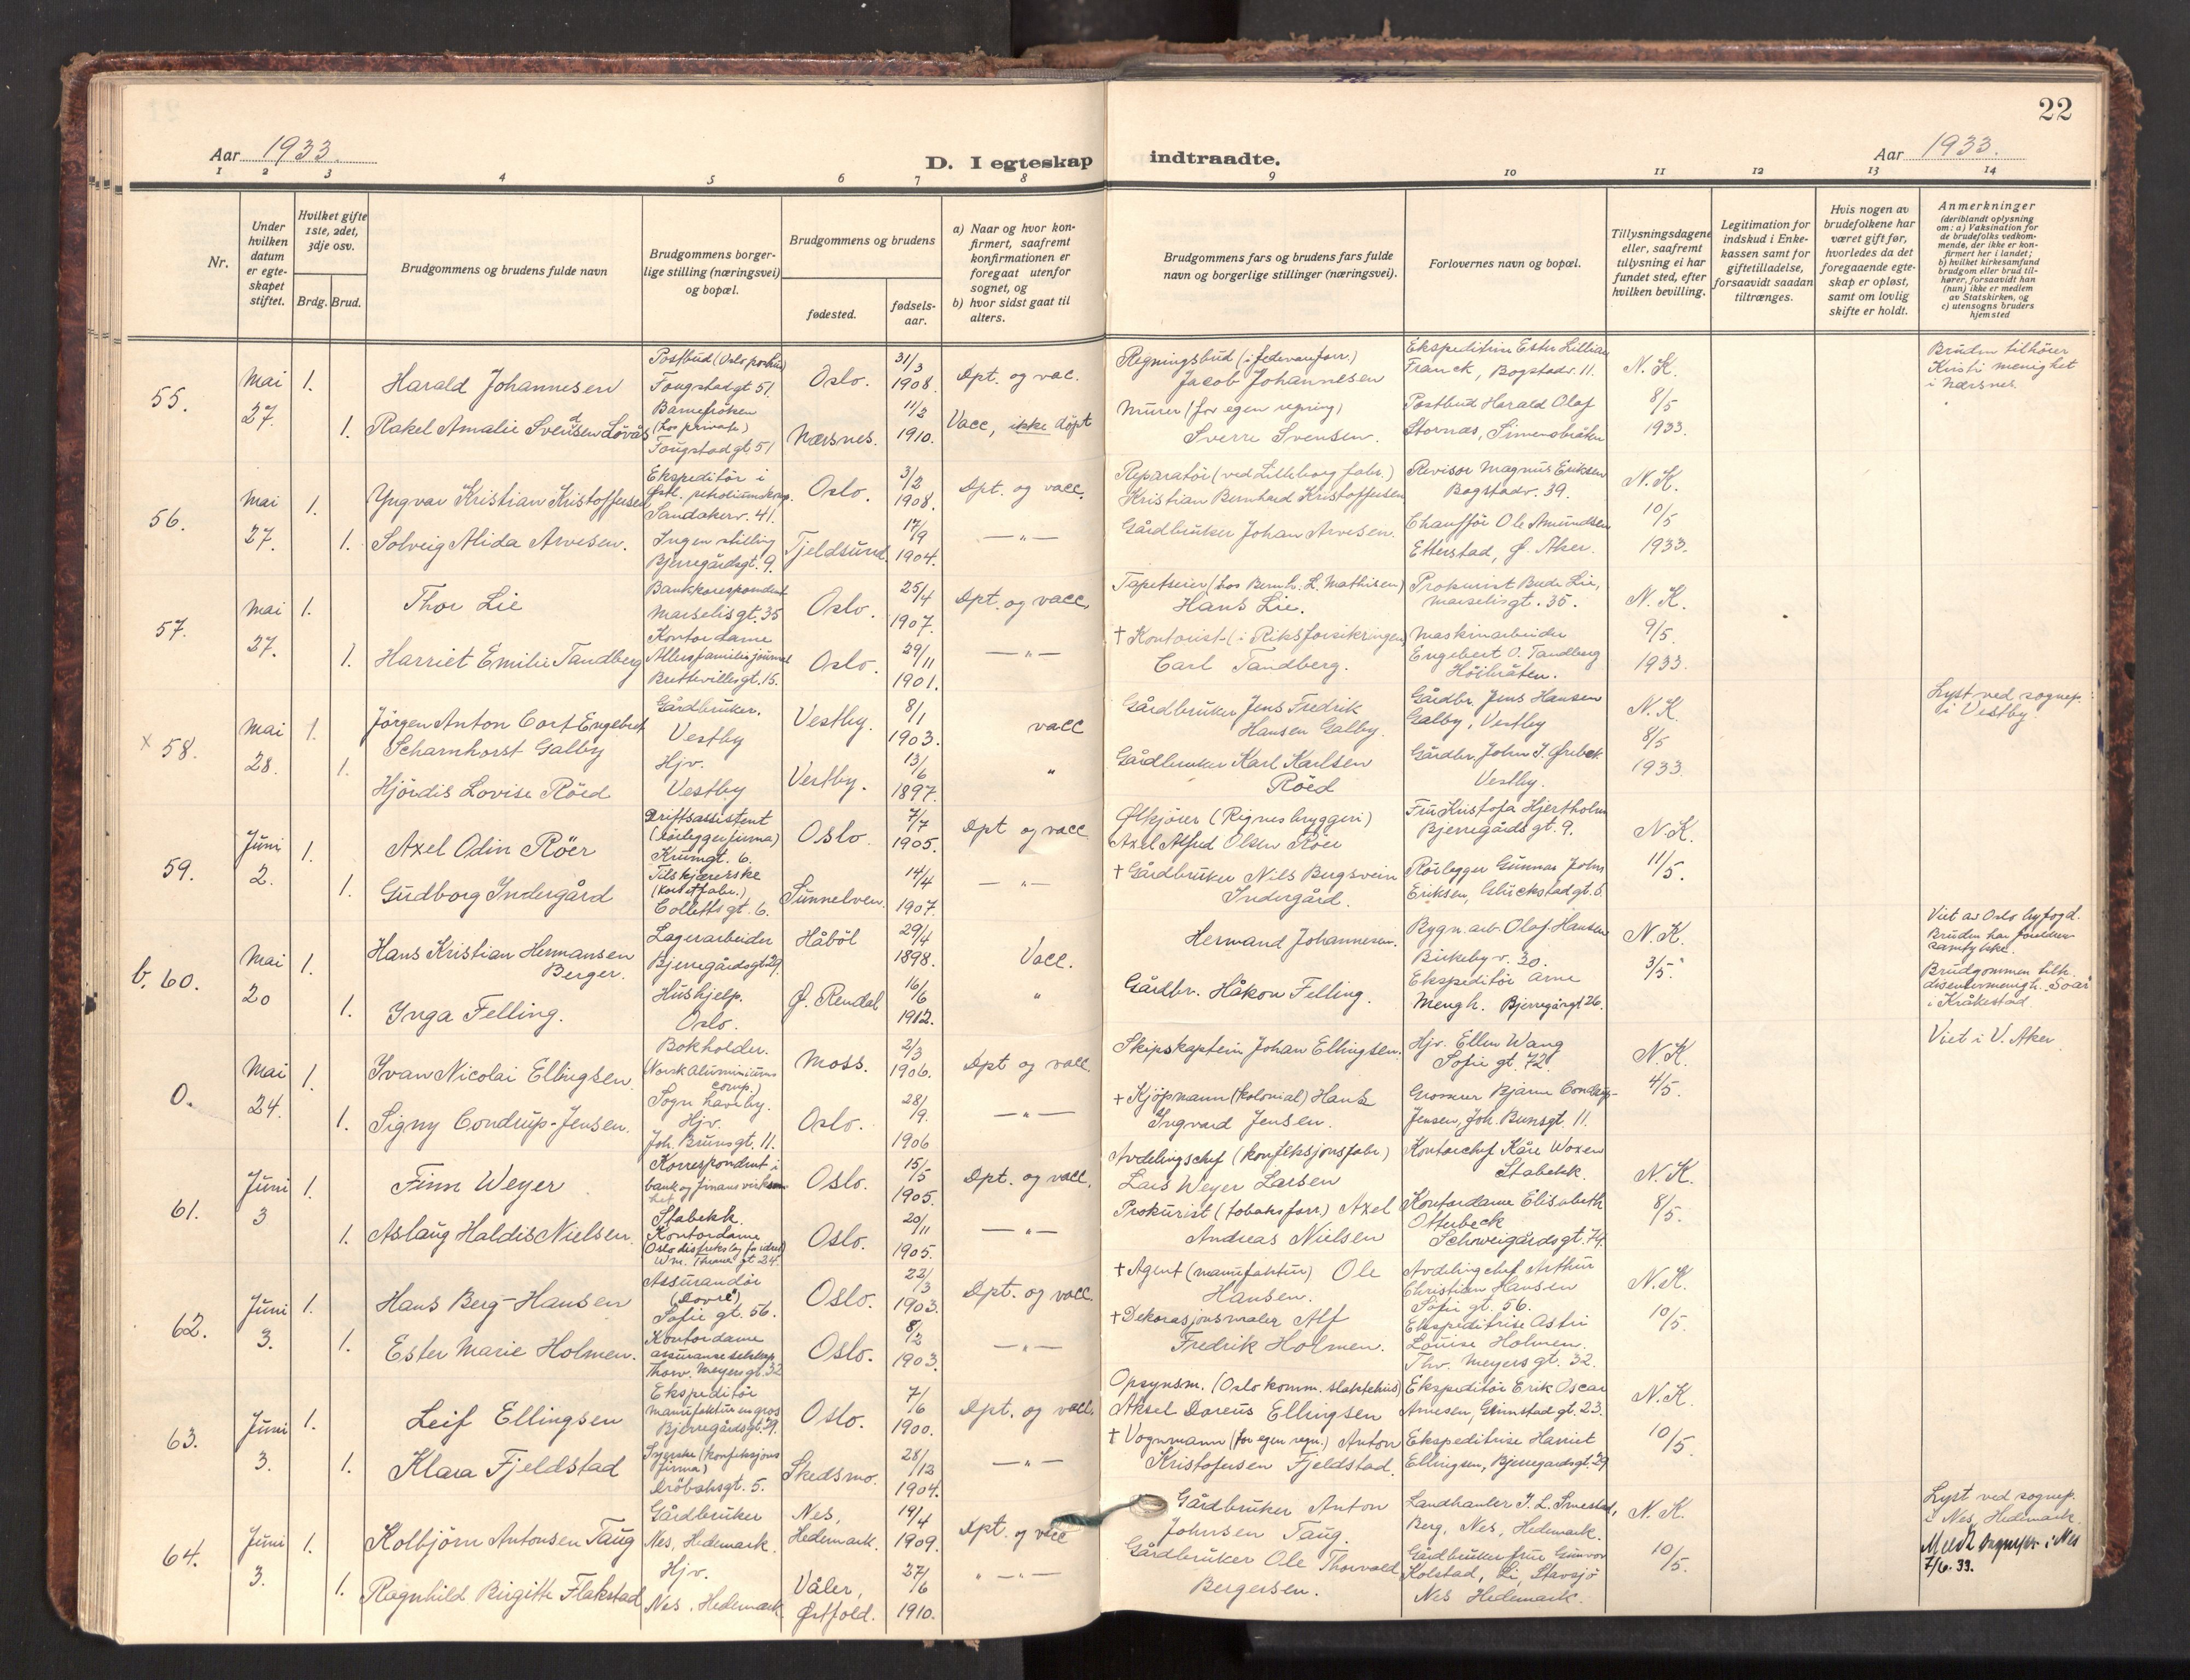 22
Aar 1933.
D. I egteskap indtraadte.
Aar 1933.
1 2 3 4 5 6 7 8 9 10 11 12 13 14
Nr.
Under hvilken datum er egte- skapet stiftet.
Hvilket gifte 1ste, 2det, 3dje osv.
Brdg. Brud.
Brudgommens og brudens fulde navn
Brudgommens borger- lige stilling (næringsvei) og bopæl.
Brudgommens og brudens
fødested.
fødsels- aar.
a) Naar og hvor kon- firmert, saafremt konfirmationen er foregaat utenfor sognet, og
b) hvor sidst gaat til alters.
Brudgommens fars og brudens fars fulde navn og borgerlige stillinger (næringsvei).
Forlovernes navn og bopæl.
Tillysningsdagene eller, saafremt tillysning ei har fundet sted, efter hvilken bevilling.
Legitimation for indskud i Enke- kassen samt for giftetilladelse, forsaavidt saadan tiltrænges.
Hvis nogen av brudefolkene har været gift før, hvorledes da det foregaaende egte- skap er opløst, samt om lovlig skifte er holdt.
Anmerkninger
(deriblandt oplysning om: a) Vaksination for de brudefolks vedkom- mende, der ikke er kon- firmert her i landet; b) hvilket kirkesamfund brudgom eller brud til- hører, forsaavidt han (hun) ikke er medlem av Statskirken, og c) utensogns bruders hjemsted
55.
Mai 27.
1.
Harald Johannesen
Postbud
Fougstadgt 51.
Oslo.
31/3 1908.
Dpt. og vac.
Jacob Johannesen
Ekspeditrise Ester Lillian
Franck, Bogstadv. 11.
N. K. 8/5 1933.
Bruden tilhører
Kristi menighet
i Nærsnes.
1.
Rakel Amalie Svendsen Løvås
Barnefröken
(hos private)
Fougstadgt 51
Nærsnes.
11/2 1910.
Vacc, ikke döpt
Murer (for egen regning)
Sverre Svensen.
Postbud Harald Olaf
Stornæs, Simensbråten
56.
Mai 27.
1.
Yngvar Kristian Kristoffersen
Ekspeditör i
Sandakerv. 41.
Oslo.
3/2 1908.
Dpt. og vacc.
Reparatör (ved Lilleborg fabr.)
Kristian Bernhard Kristoffersen
Revisor Magnus Eriksen
Bogstadv. 39.
N. K. 10/5 1933.
1.
Solveig Alida Arvesen.
Ingen stilling
Bjerregårdsgt. 9.
Tjeldsund.
17/9 1904.
— " —
Gårdbruker Johan Arvesen.
Chaufför Ole Amundsen
Etterstad, Ø. Aker.
57.
Mai 27.
1.
Thor Lie
Bankkorespondent
Marselisgt. 35
Oslo.
25/4 1907.
Dpt. og vacc.
Tapetserer (hos Bernh. L. Mathisen)
Hans Lie.
Prokurist Lie,
Marselisgt. 35.
N. K. 9/5. 1933.
1.
Harriet Emilie Tandberg
Kontordame
Allersfamiliejournal
Brettevillesgt. 15.
Oslo.
29/11 1901.
— " —
† Kontorist (i Riksforsikringen)
Carl Tandberg.
Maskinarbeider
Engebert O. Tandberg
Höibråten.
x 58.
Mai 28.
1.
Jörgen Anton Cort Engebret
Scharnhorst Galby
Gårdbruker.
Vestby
Vestby.
8/1 1903.
vacc
Gårdbruker Jens Fredrik
Hansen Galby.
Gårdbr. Jens Hansen
Galby, Vestby
N. K. 8/5 1933.
Lyst ved sognep.
i Vestby
1.
Hjördis Lovise Röed
Hjv.
Vestby
Vestby.
13/6 1897.
"
Gårdbruker Karl Karlsen
Röed
Gårdbr. John J. Ørebek
Vestby.
59.
Juni 2.
1.
Axel Odin Röer
Driftsassistent
(rörleggerfirma)
Krumgt. 6.
Oslo.
7/7 1905.
Dpt og vacc.
Ølkjörer (Rignes bryggeri)
Axel Alfred Olsen Röer
Fru Kristofa Hjertholm
Bjerregårds gt. 9.
N. K. 11/5.
1.
Gudborg Indergård
Tilskjærerske
Colletts gt. 6.
Sunnelven.
14/4 1907.
— " —
† Gårdbruker Nils Bergsvein
Indergård.
Rörlegger Gunnar John
Eriksen, Glückstadgt. 6.
b. 60.
Mai 20
1.
Hans Kristian Hermansen
Berger.
Lagerarbeider
Bjerregårdsgt 29.
Håböl
29/4 1898.
Vacc.
Herman​d Johannesen.
Bygn. arb. Olaf Hansen
Birkeby v. 30.
N. K. 3/5.
Viet av Oslo byfogd.
Bruden har foreldres
samtykke.
Brudgommen tilh.
i Kråkestad
1.
Inga Felling.
Hushjelp.
Oslo.
Ø. Rendal
16/6 1912.
"
Gårdbr. Håkon Felling.
Ekspeditör Arne
Mengh. Bjerregårgt 26.
0.
Mai 24.
1.
Ivan Nicolai Ellingsen
Bokholder.
(Norsk Aluminiums
comp.)
Sogn haveby.
Moss.
2/3 1906.
Dpt og vacc.
Skipskaptein Johan Ellingsen.
Hjv. Ellen Wang
Sofie gt. 72.
N. K. 4/5.
Viet i V. Aker
1.
Signy Condrup-Jensen.
Hjv.
Joh. Brunsgt. 11.
Oslo.
28/9. 1906
— " —
† Kjöpmann (kolonial) Hans
Ingvard Jensen.
Grosserer Bjarne Condrup-
Jensen, Joh. Brunsgt. 11.
61.
Juni 3
1.
Finn Weyer
Korrespondent i
bank og finansvirksom
het
Stabekk.
Oslo.
15/5 1905.
Dpt. og vacc.
Avdelingschef (konfeksjonsfabr.)
Lars Weyer Larsen
Kontorchef Kåre Woxen
Stabekk.
N. K. 8/5.
1.
Aslaug Haldis Nielsen.
Kontordame
Wm. Thranes gt 24.
Oslo.
20/11 1905.
— " —
Prokurist (tobaksforr.) Axel
Andreas Nielsen
Kontordame Elisabeth
Otterbeck
Schweigårdsgt. 74.
62.
Juni 3.
1.
Hans Berg-Hansen
Assurandör
(Dovre)
Sofie gt. 56.
Oslo.
22/3 1903.
Dpt. og vacc.
† Agent (manufaktur) Ole
Hansen.
Avdelingschef Arthur
Christian Hansen
Sofie gt. 56.
N. K. 10/5.
1.
Ester Marie Holmen.
Kontordame
assuranseselskap
Thorv. Meyers gt. 32
Oslo.
8/2 1903.
— " —
† Dekorasjonsmaler Alf
Fredrik Holmen.
Ekspeditrise Astri
Louise Holmen.
Thv. Meyers gt. 32.
63.
Juni 3.
1.
Leif Ellingsen
Ekspeditör
manufaktur en gros
Bjerregårdsgt. 29.
Oslo.
7/6 1900.
Dpt. og vacc.
Opsynsm. (Oslo komm. slaktehus)
Aksel Doreus Ellingsen
Ekspeditör Erik Oscar
Arnesen, Grimstad gt. 23.
N. K. 10/5.
1.
Klara Fjeldstad
Syerske (konfeksjons
firma)
Dröbaksgt. 5.
Skedsmo.
28/12 1904.
— " —
† Vognmann (for egen regn.) Anton
Kristofersen Fjeldstad.
Ekspeditrise Harriet
Ellingsen, Bjerregårdsgt. 29
64.
Juni 3.
1.
Kolbjörn Antonsen Taug
Gårdbruker
Nes, Hedemark.
Nes,
Hedemark.
14/4 1909.
Dpt. og vacc
Gårdbruker Anton
Johnsen Taug.
Landhanler J. L. Smestad,
Berg, Nes, Hedemark.
N. K. 10/5.
Lyst ved sognep.
i Nes, Hedemark.
Meldt sognepr. i Nes
7/6. 33.
1.
Ragnhild Birgitte Flakstad
Hjv.
Nes, Hedemark
Våler,
Østfold.
27/6 1910.
" — " —
Gårdbruker Ole Thorvald
Bergersen.
Gårdbruker frue Gunvor
Kolstad, Li, Stavsjö
Nes Hedemark.